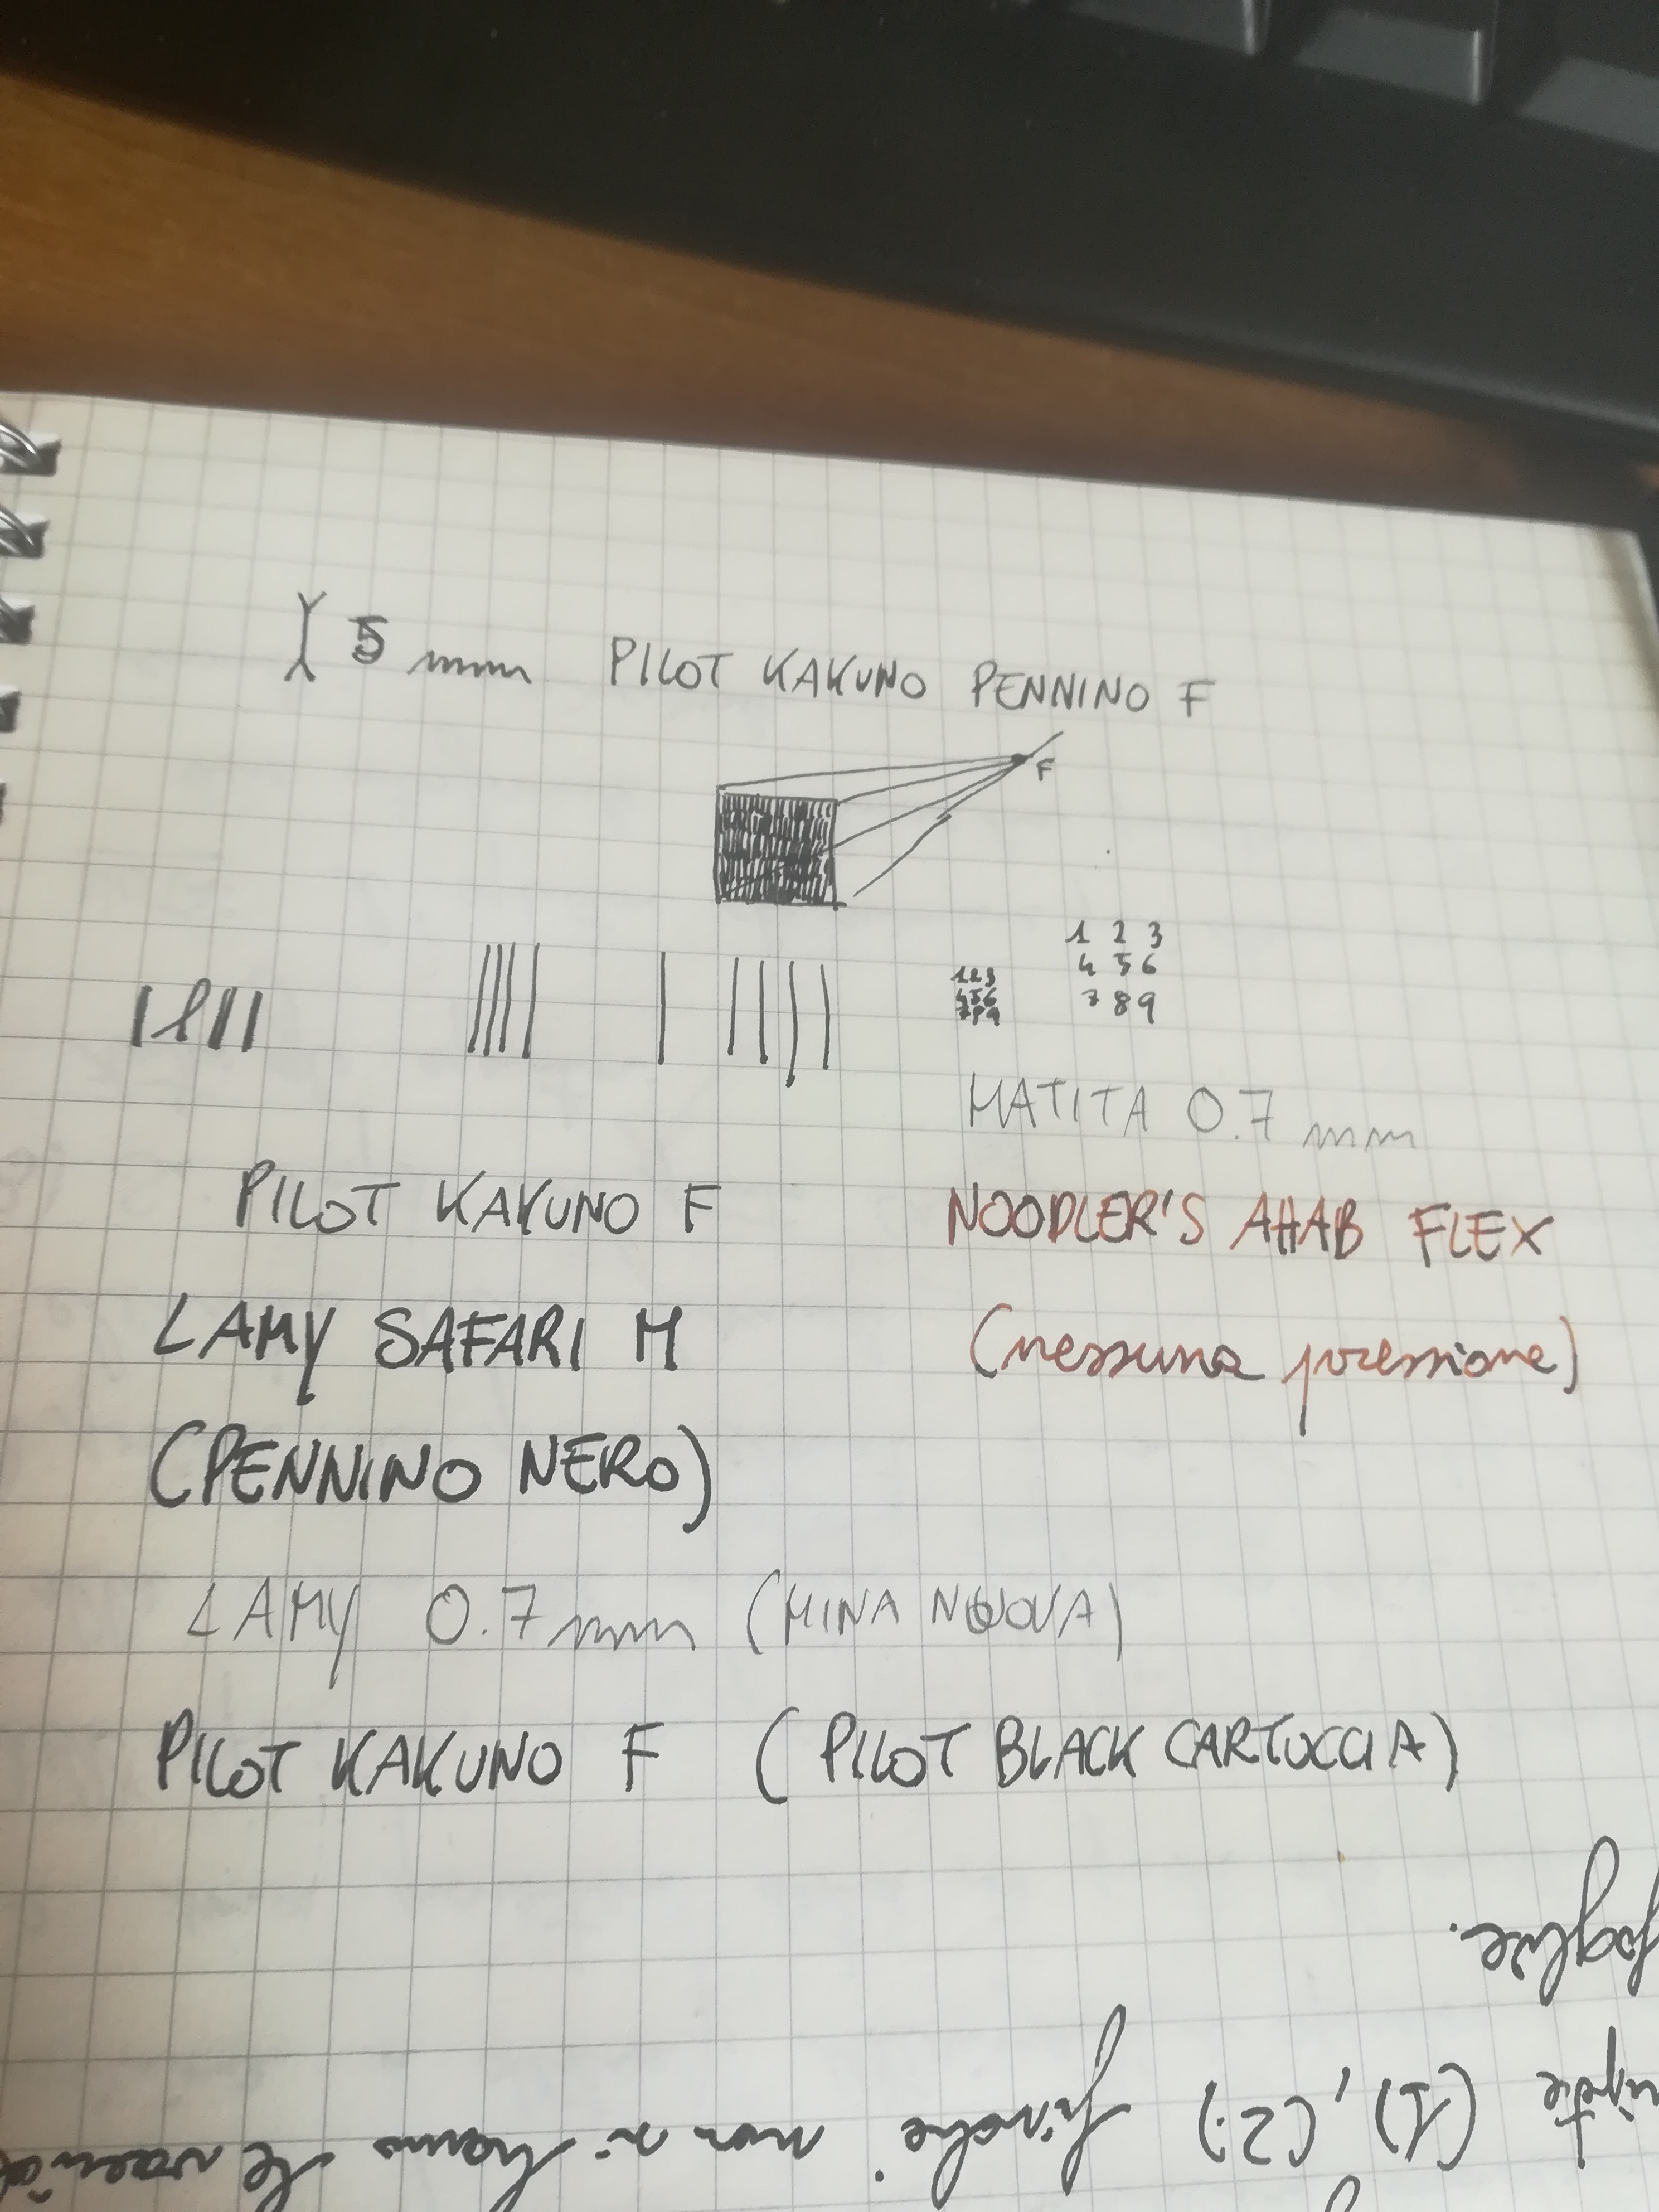 5 mm PILOT KAKUNO PENNINO F
F
1 2 3
4 5 6
7 8 9
1 2 3
4 5 6
7 8 9
MATITA 0.7 mm
PILOT KAKUNO F
NOODLER'S AHAB FLEX
(nessuna pressione)
LAMY SAFARI M
(PENNINO NERO)
LAMY 0.7 mm (MINA NUOVA)
PILOT KAKUNO F (PILOT BLACK CARTUCCIA)
foglie.
(1), (2) finché non si hanno le